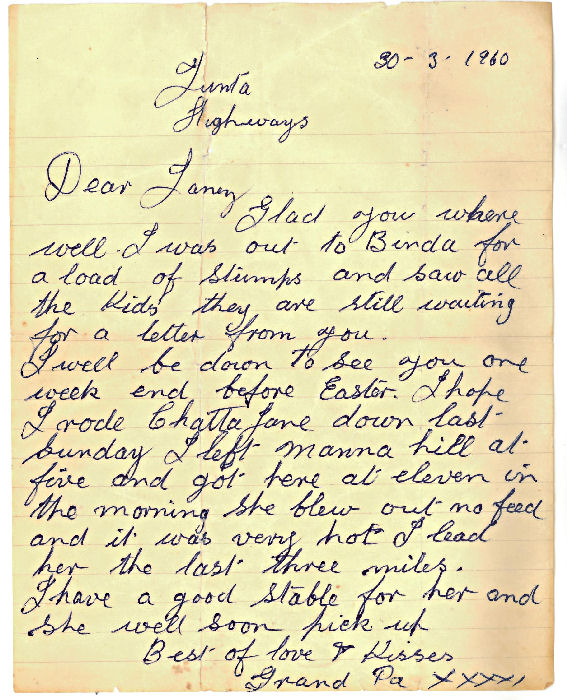 30-3-1960
Yunta
Highways
Dear Janey
Glad you where
well. I was out to Binda for
a load of stumps and saw all
the kids they are still waiting
for a letter from you.
I well be down to see you one
week end before Easter. I hope
I rode Chatta Jane down last
Sunday I left manna hill at
five and got here at eleven in
the morning she blew out no feed
and it was very hot I lead
her the last three miles.
I have a good stable for her and
she well soon pick up
Best of love & Kisses
Grand Pa XXXX